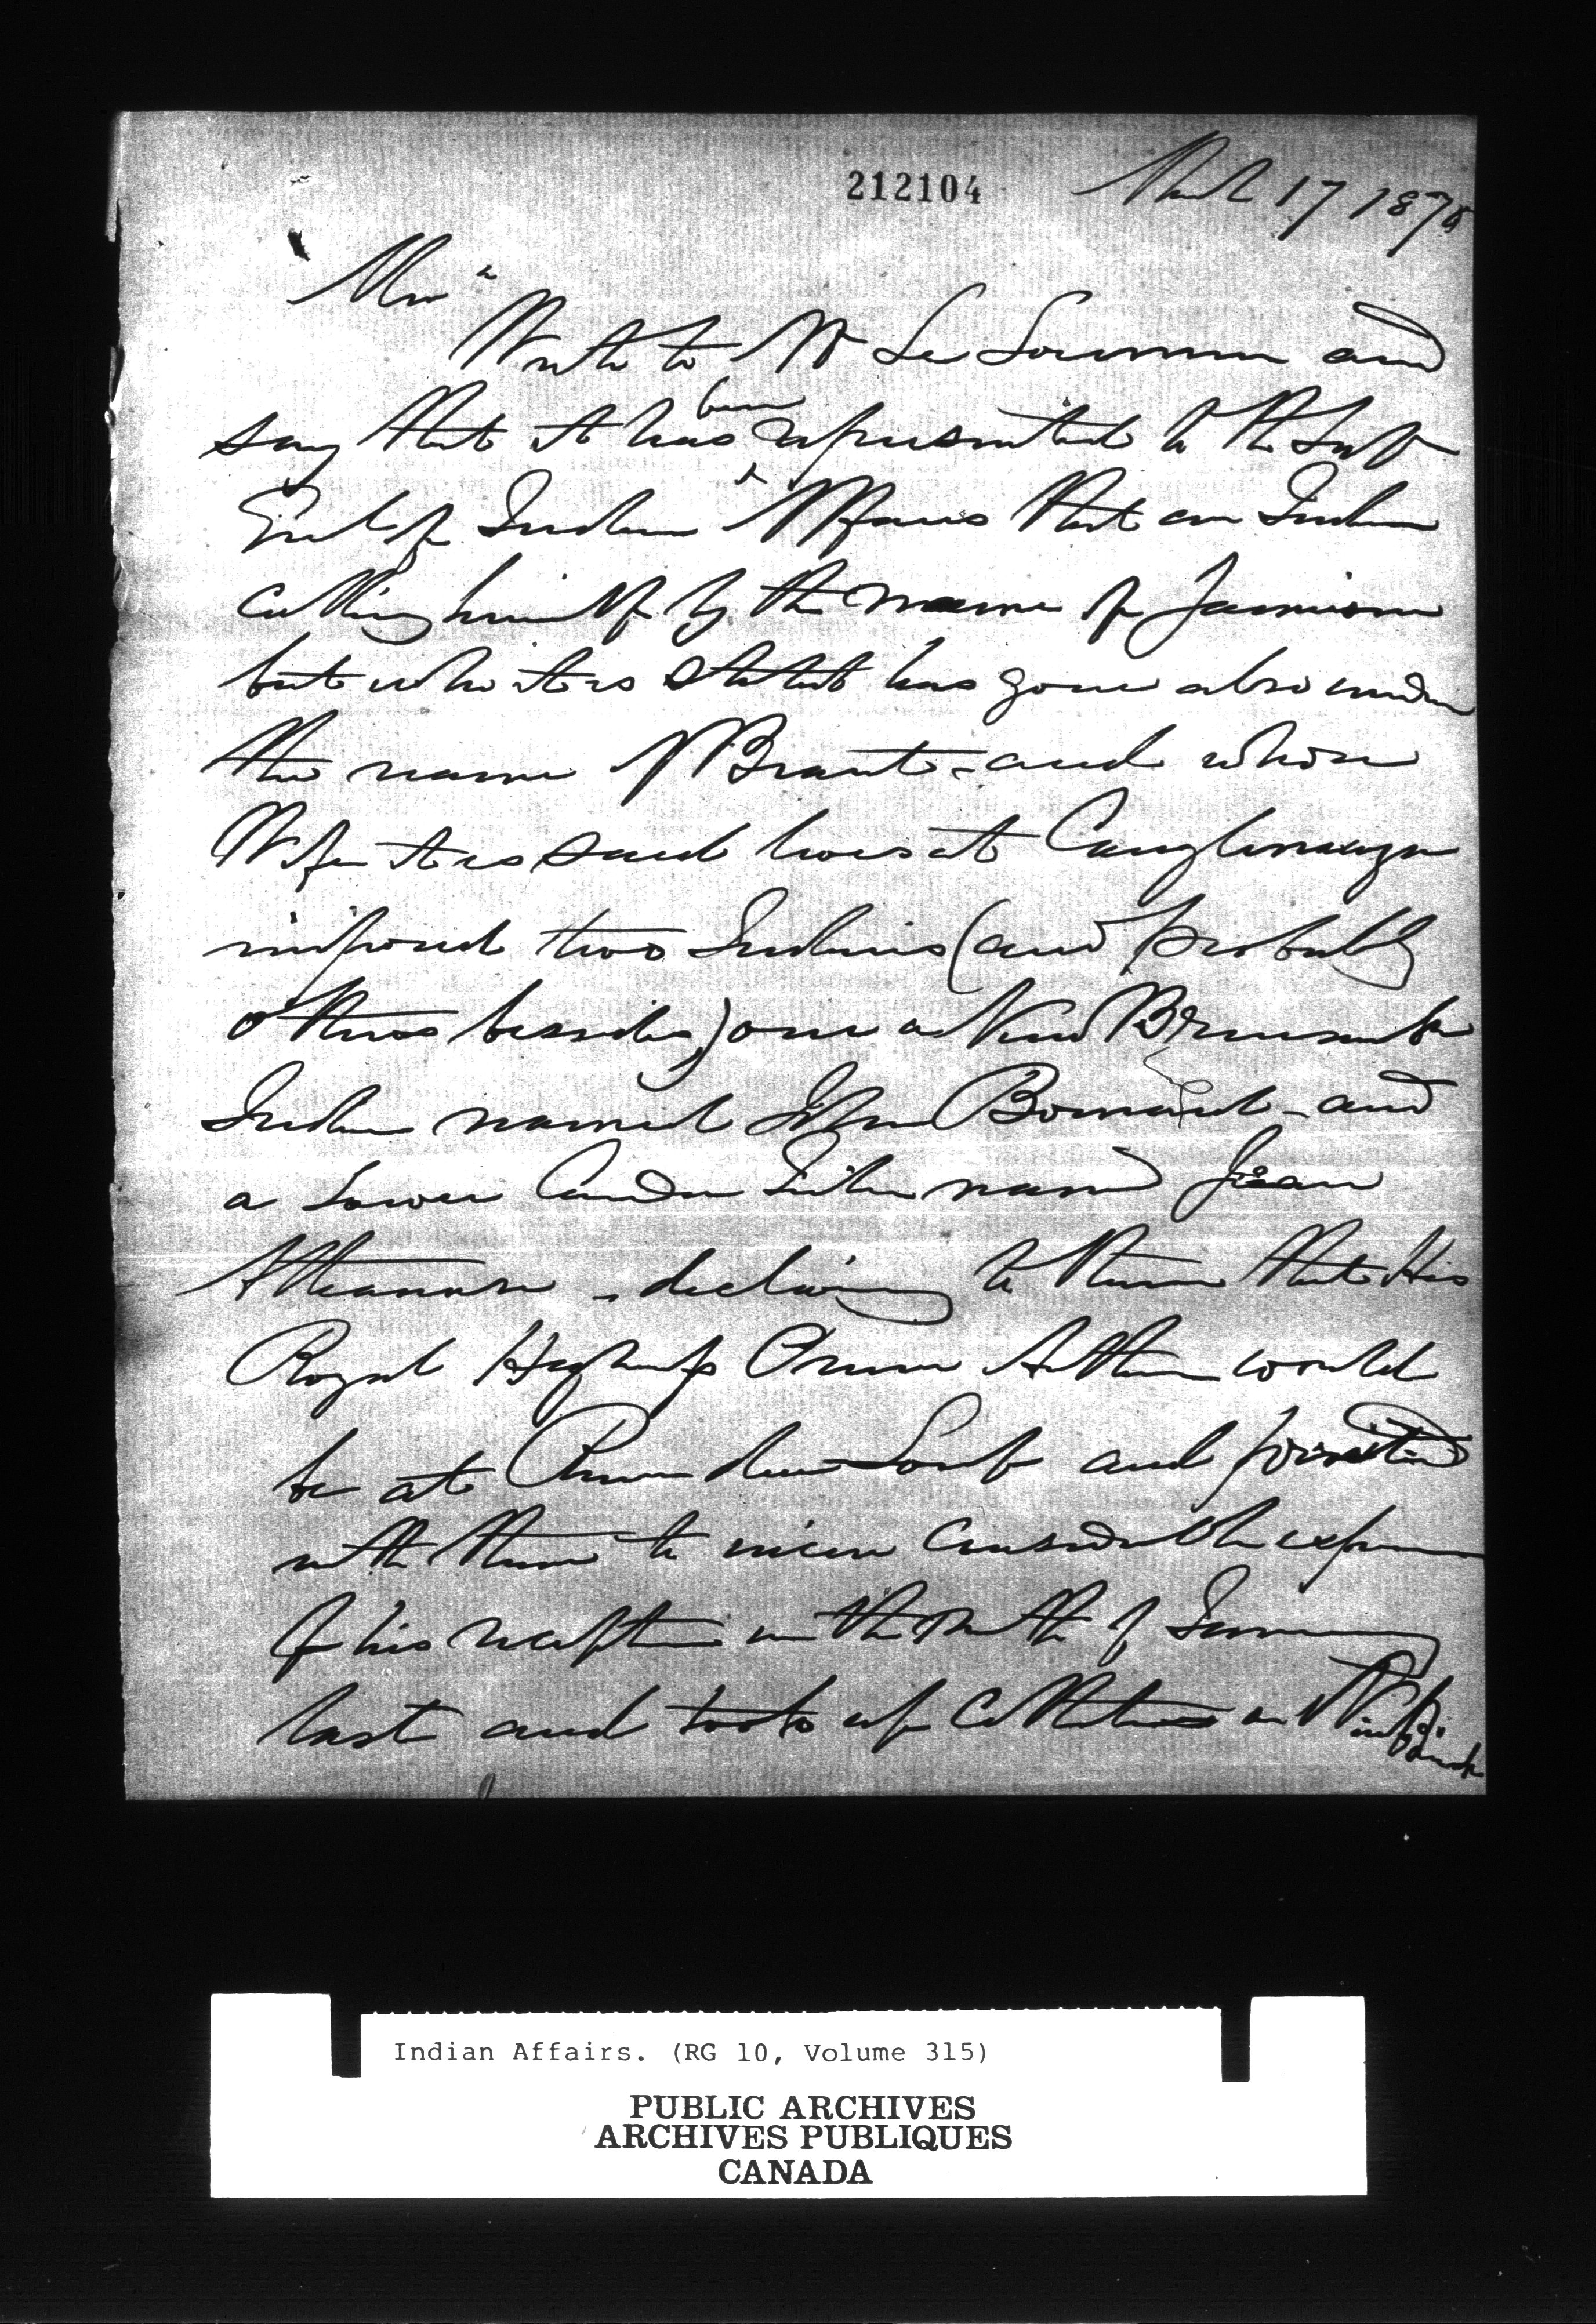 212104
March 17 1870
Mem
Write to Mr Le Sueur and
say that it has been represented to the Sup
Genl of Indian Affairs that an Indian
calling himself by the name of Jamieson
but who it is stated has gone also under
the name of Brant - and whose
Wife it is said lives at Caughnawaga
induced two Indians (and probably
others besides) one a New Brunswick
Indian named John Bernard - and
a Lower Canada Indian named Jean
- declaring to them that His
Royal Highness Prince Arthur would
be at Rivière du Loup and
with them to incur considerable expense
for his reception in the month of January
last and took up collections in
Indian Affairs. (RG 10, Volume 315)
PUBLIC ARCHIVES
ARCHIVES PUBLIQUES
CANADA